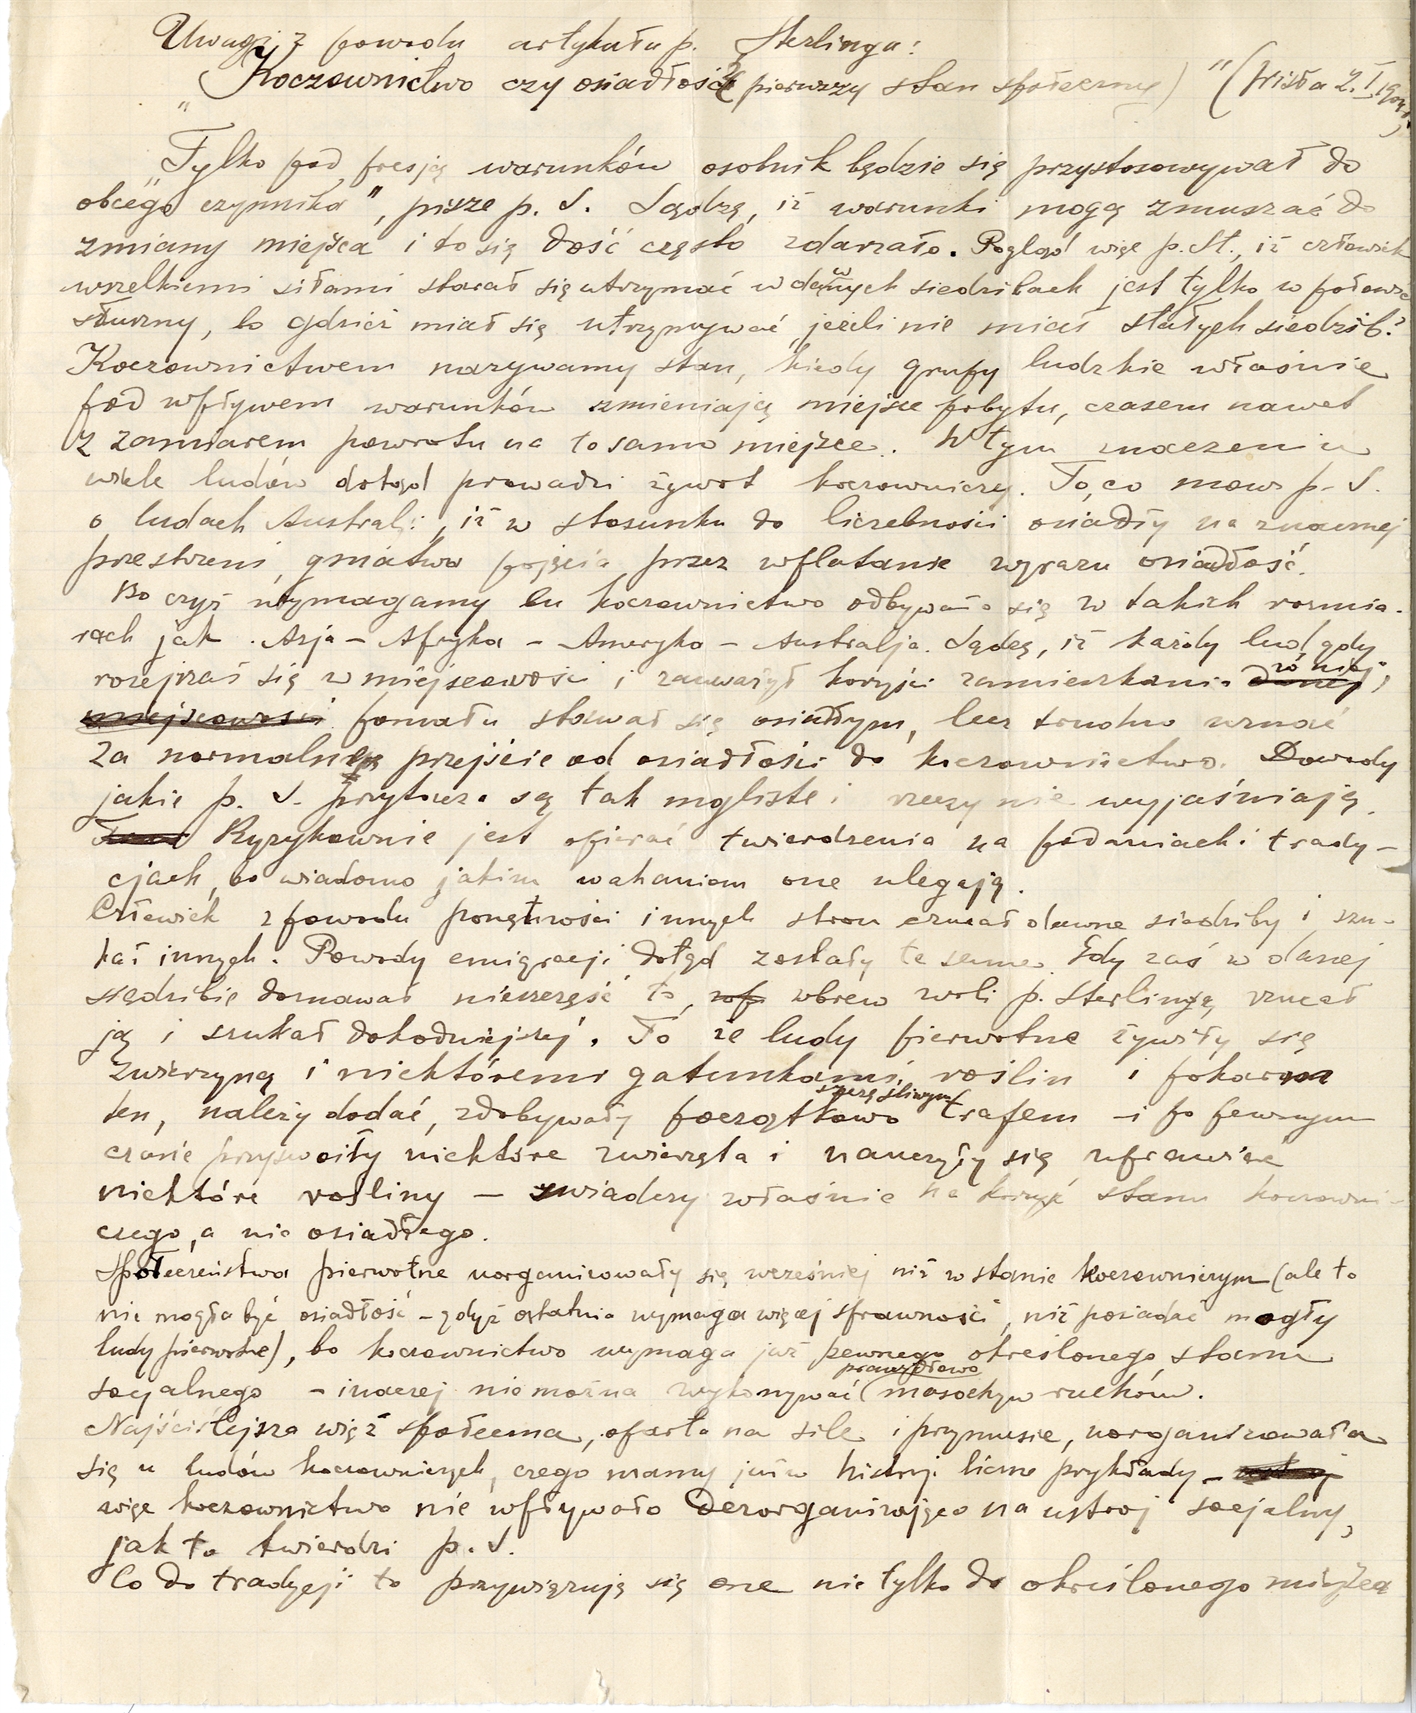 Uwagi z powodu artykułu p. Sterlinga:
"Koczownictwo czy osiadłość (pierwszy stan społeczny)" (Wisła z. I.
"Tylko pod presją warunków osobnik będzie się przystosowywał do
obcego czynnika", pisze p. S. Sądzę, iż warunki mogą zmuszać do
zmiany miejsca i to się dość często zdarzało. Pogląd więc p. St., iż człowiek
wszelkiemi siłami starał się utrzymać w dawnych siedzibach jest tylko w połowie
słuszny, bo gdzież miał się utrzymywać, jeżeli nie miał stałych siedzib?
Koczownictwem nazywamy stan, kiedy grupy ludzkie właśnie
pod wpływem warunków zmieniają miejsce pobytu, czasem nawet
z zamiarem powrotu na to samo miejsce. W tym znaczeniu
wiele ludów dotąd prowadzi żywot koczowniczy. To, co mówi p. S.
o ludach Australji, iż w stosunku do liczebności osiadły na znacznej
przestrzeni, gmatwa pojęcia przez wplatanie wyrazu osiadłość.
Bo czyż wymagamy by koczownictwo odbywało się w takich rozmia-
rach jak Azja – Afryka – Ameryka – Australja. Sądzę, iż każdy lud, gdy
rozejrzał się w miejscowości i zauważył korzyści zamieszkania w niej,
pomału stawał się osiadłym, lecz trudno uznać
za normalne przejście od osiadłości do koczownictwa. Dowody
jakie p. S. przytacza są tak mgliste i rzeczy nie wyjaśniają.
Ryzykownie jest opierać twierdzenia na podaniach i trady-
cjach, bo wiadomo jakim wahaniom one ulegają.
Człowiek z powodu ponętności innych stron rzucał dawne siedziby i szu-
kał innych. Powody emigracji dotąd zostały te same. Gdy zaś w danej
siedzibie doznawał nieszczęść to, wbrew woli p. Sterlinga, rzucał
ją i szukał dogodniejszej. To że ludy pierwotne żywiły się
zwierzyną i niektóremi gatunkami roślin i pokarm
ten, należy dodać, zdobywały początkowo szczęśliwym trafem – i po pewnym
czasie przyswoiły niektóre zwierzęta i nauczyły się uprawiać
niektóre rośliny – świadczy właśnie na korzyść stanu koczowni-
czego, a nie osiadłego.
Społeczeństwa pierwotne uorganizowały się wcześniej niż w stanie koczowniczym (ale to
nie mogła być osiadłość – gdyż ostatnia wymaga więcej sprawności, niż posiadać mogły
ludy pierwotne), bo koczownictwo wymaga już pewnego określonego stanu
socjalnego – inaczej nie można wykonywać prawidłowo masowych ruchów.
Najściślejsza więź społeczna, oparta na sile i przymusie, uorganizowała
się u ludów koczowniczych, czego mamy już w historji liczne przykłady –
więc koczownictwo nie wpływało dezorganizująco na ustrój socjalny,
jak to twierdzi p. S.
Co do tradycji to przywiązują się one nie tylko do określonego miejsca